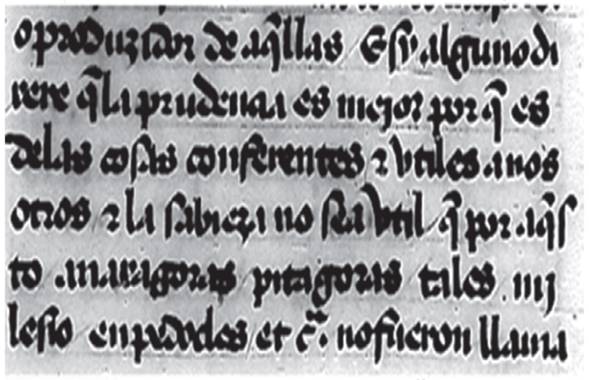 o produzidor de aq̃llas E sy alguno di
xere q̃ la prudençia es mejor por q̃ es
delas cosas conferentes ⁊ vtiles a nos
otros ⁊ la sabieza no sea vtil q̃ por aq̃s
to anaxagoras pitagoras tales mi
lesio enpedocles et c̃. no fueron llama